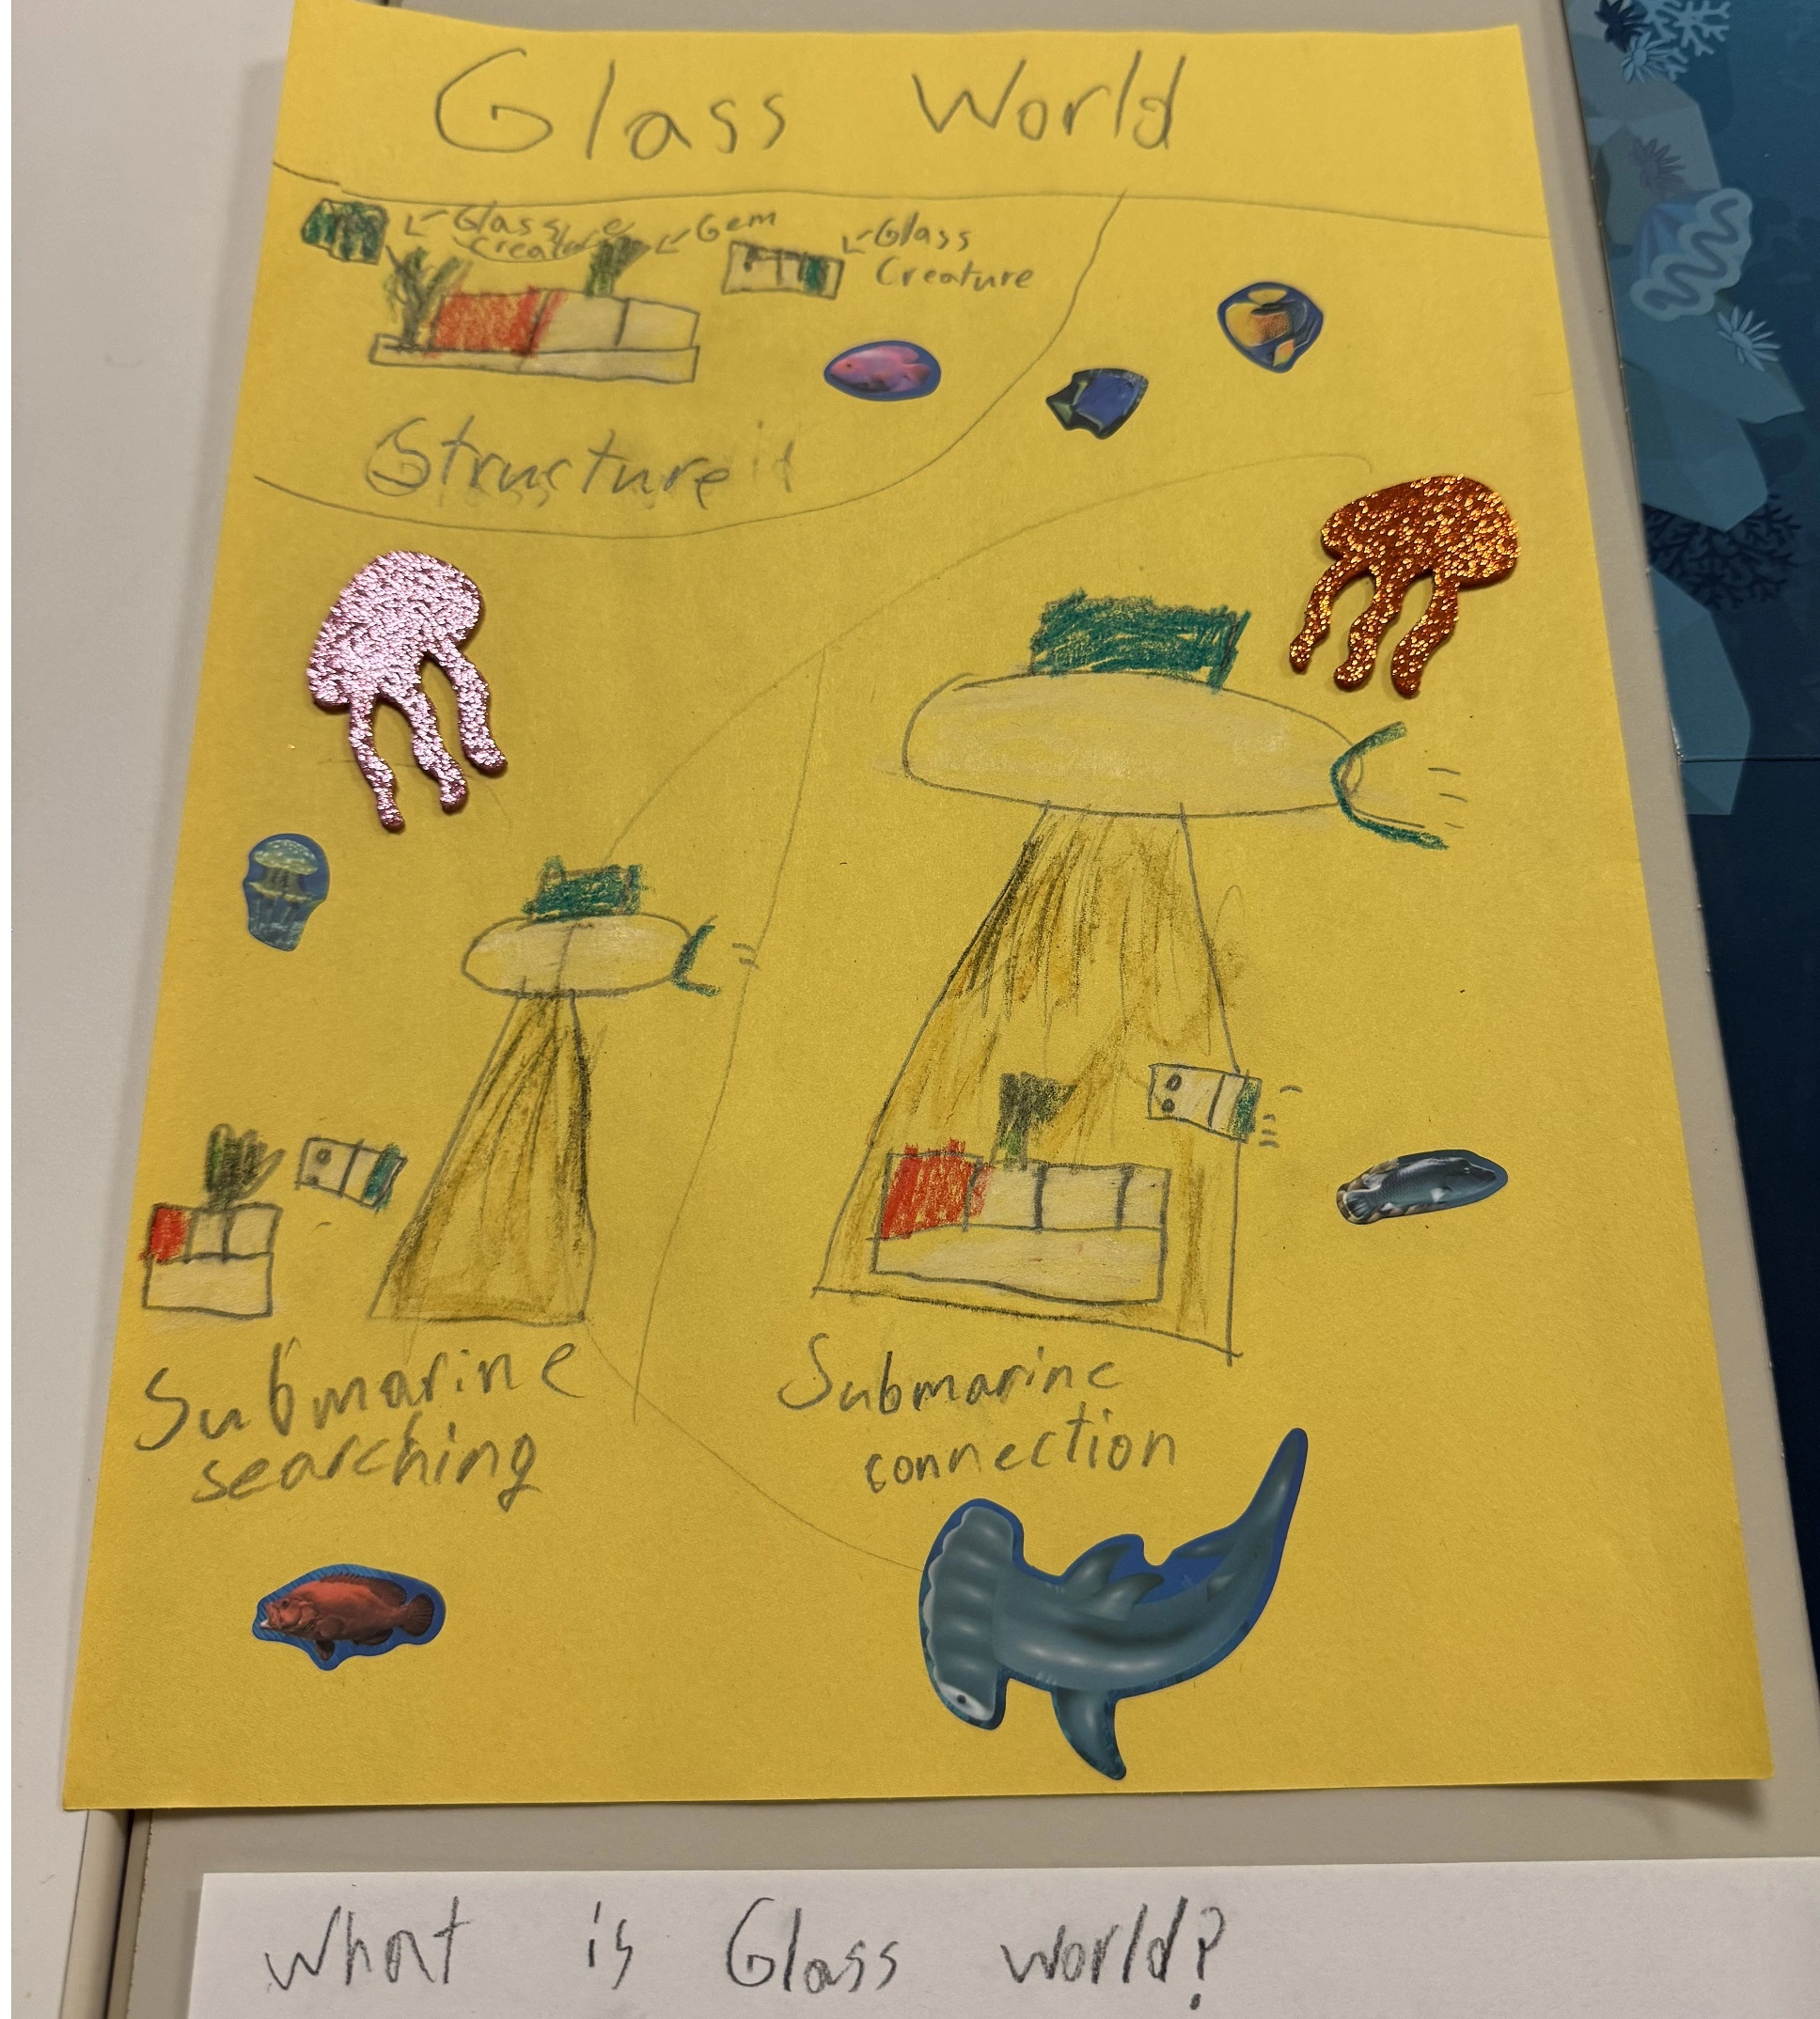 Glass World
Glass
creature
Gem
Glass
Creature
Structure
Submarine
searching
Submarine
connection
What is Glass world?